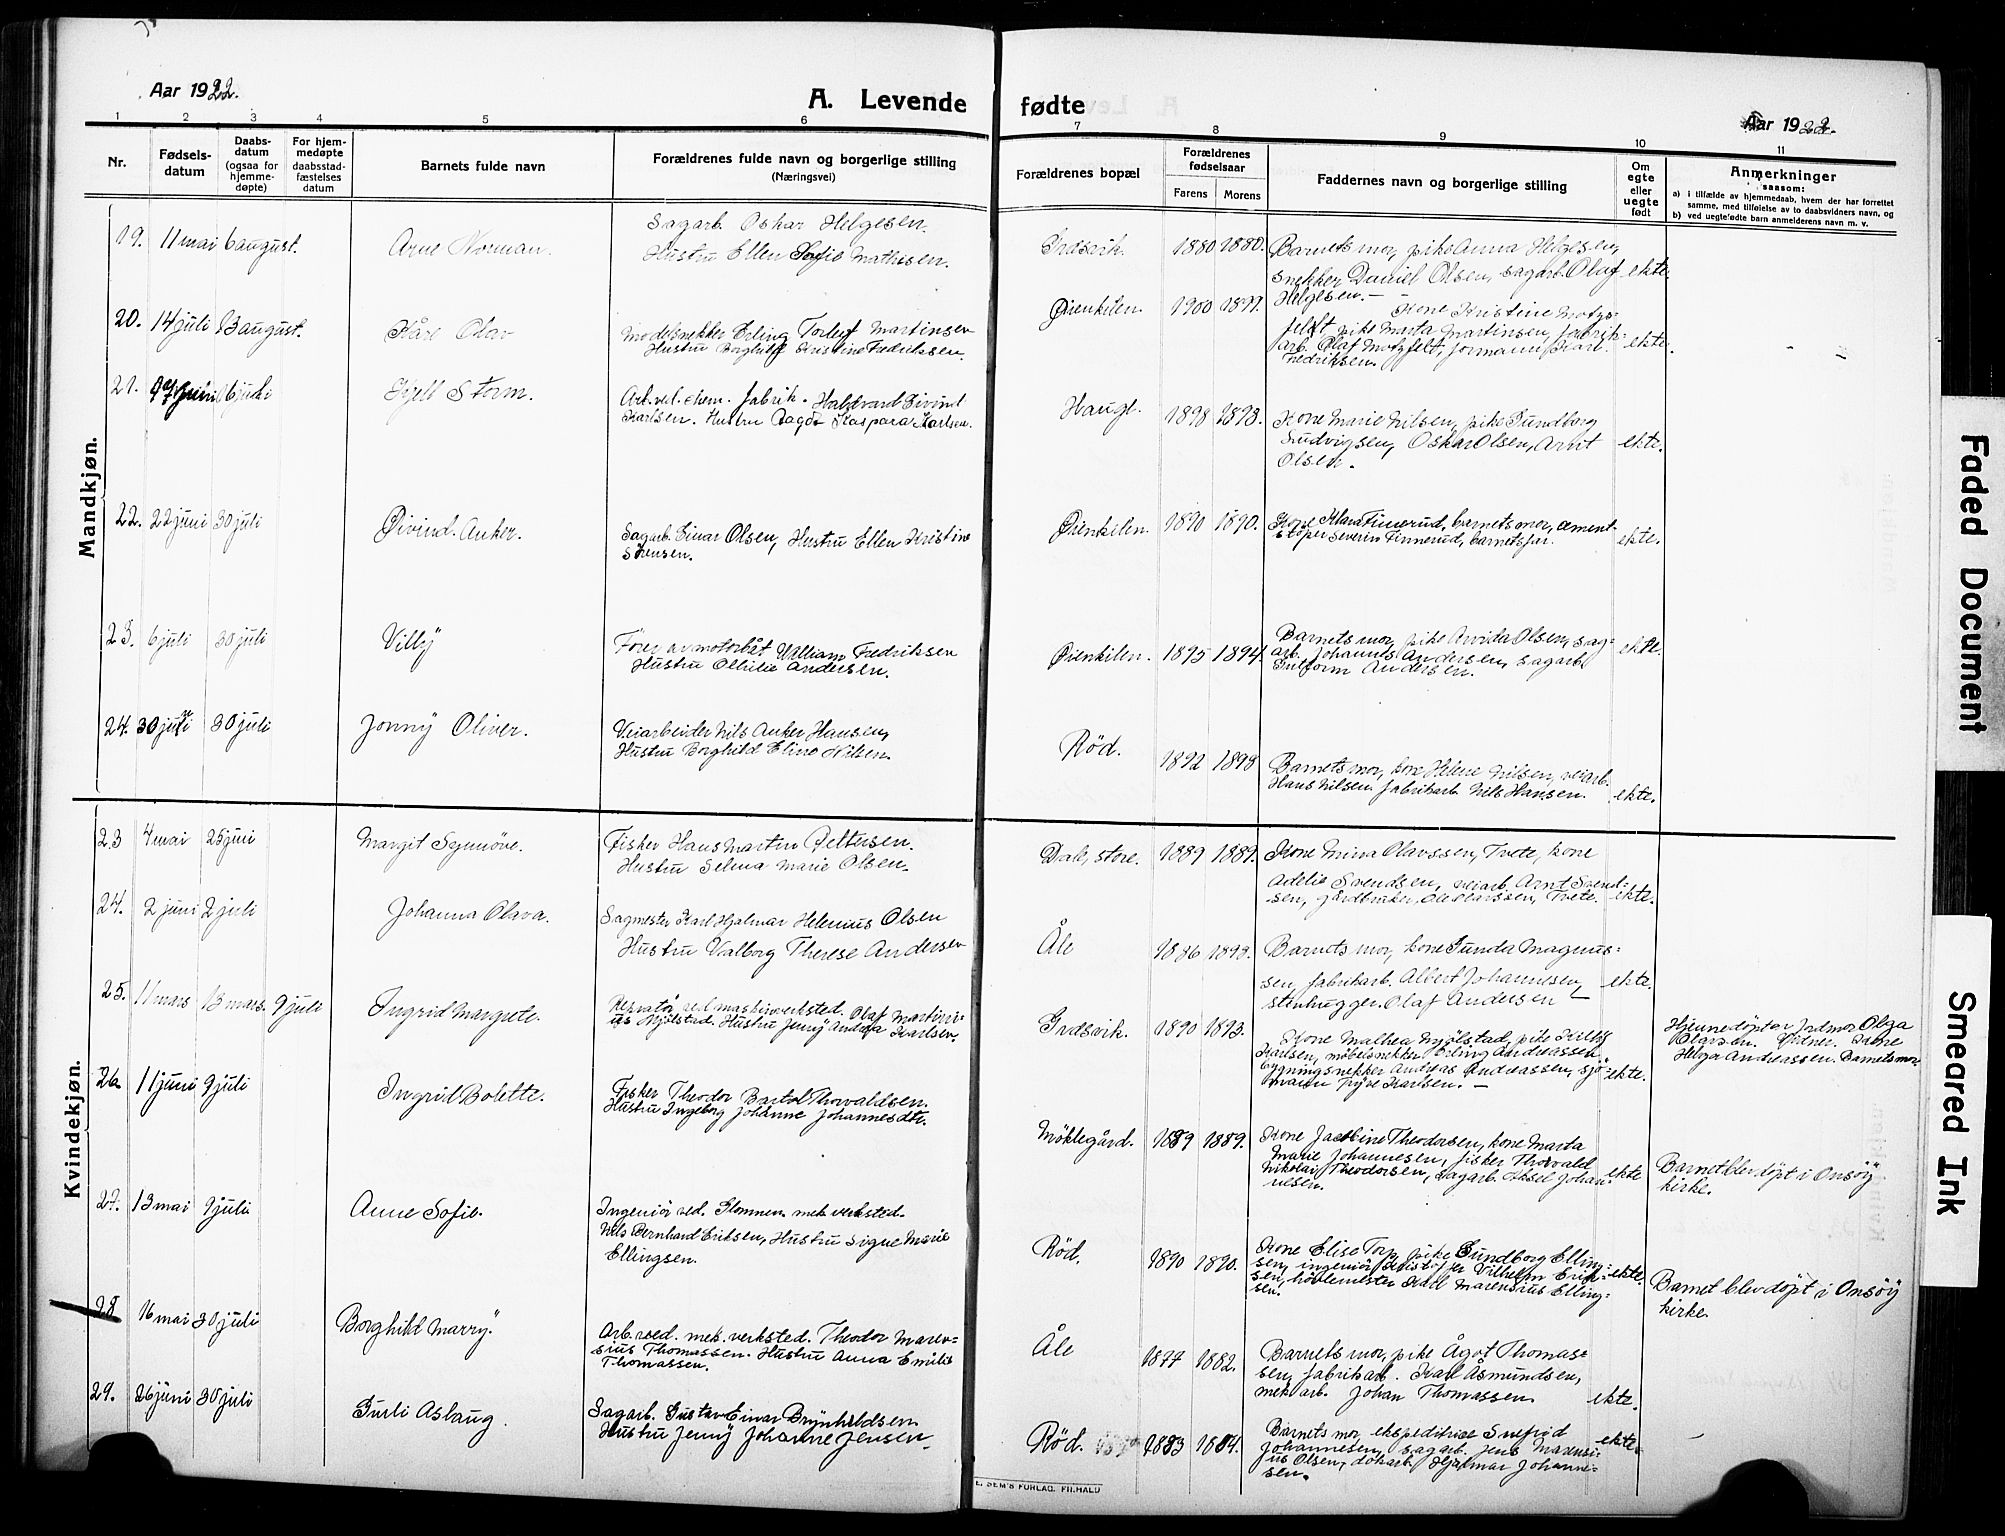 Aar 1922.
A. Levende fødte
Aar 1922.
1 2 3 4 5 6 7 8 9 10 11
Nr.
Fødsels-
datum
Daabs-
datum
(ogsaa for
hjemme-
døpte)
For hjem-
medøpte
daabsstad-
fæstelses
datum
Barnets fulde navn
Forældrenes fulde navn og borgerlige stilling
(Næringsvei)
Forældrenes bopæl
Forældrenes
fødselsaar
Farens Morens
Faddernes navn og borgerlige stilling
Om
egte
eller
uegte
født
Anmerkninger
saasom:
a) i tilfælde av hjemmedaab, hvem der har forrettet
samme, med tilføielse av to daabsvidners navn, og
b) ved uegtefødte barn anmelderens navn m. v.
Mandkjøn.
19. 11 mai 6 august. Arne Norman.
Sagarb. Oskar Helgesen.
Hustru Ellen Sofie Mathisen.
1880 1880.
Barnets mor, pike Anna Helgesen,
snekker Daniel Olsen, sagarb. Olaf
Helgesen. —
ekte.
20. 14 juli 13 august. Kåre Olav
Modelsnekker Erling Torleif Martinsen
Hustru Borghild Kristine Fredriksen.
Øienkilen. 1900 1899.
Kone Kristine Motzs-
feldt, pike Marta Martinsen, fabrik-
arb. Olaf Motzfelt, formann Karl
Fredriksen.
ekte.
21. Kjell Storm.
Arb. ved. chem. fabrik. Haldvard Eivind
Karlsen. Hustru Dagde Kaspara Karlsen.
Hauge. 1898 1893.
Kone Marie Nilsen, pike Gundborg
Ludvigsen, Oskar Olsen, Arnt
Olsen.
ekte.
22. 22 juni 30 juli Øivind. Anker.
Sagarb. Einar Olsen, Hustru Ellen Kristine
Sørensen.
Øienkilen. 1890 1890.
Kone Klara Finnerud, barnets mor, cement-
støper Severin Finnerud, barnets far.
ekte.
23. 6 juli 30 juli Villy
Fører av motorbåt William Fredriksen
Hustru Othilie Andersen.
Øienkilen. 1895 1894.
Barnets mor, pike Arvida Olsen, sag-
arb. Johannes Andersen, sagarb.
Gulform Andersen.
ekte.
24. 30 juni 30 juli Jonny Oliver.
Veiarbeider Nils Anker Hansen,
Hustru Borghild Eline Nilsen.
Rød. 1892 1898
Barnets mor, kone Helene Nilsen, veiarb.
Hans Nilsen fabrikarb. Nils Hansen.
ekte.
Kvindekjøn.
23 4 mai 25 juni Margit Synnöve.
Fisker Hans Martin Pettersen.
Hustru Selma Marie Olsen.
Dale, store. 1889 1889.
Kone Mina Olavssen, Tvete, kone
Adelie Svendsen, veiarb. Arnt Svend-
sen, gårdbruker, Ole Olavssen, Tvete.
ekte.
24. 2 juni 2 juli Johanna Olava.
Sagmester Karl Hjalmar Helenius Olsen
Hustru Valborg Therese Andersen
Åle 1886 1893.
Barnets mor, kone Gunda Magnus-
sen, fabrikarb. Albert Johannessen,
stenhugger. Olaf Andersen —
ekte.
25. 11 mars 13 mars. 9 juli Ingrid Margrete.
Repratør ved maskinverksted. Olaf Martini-
us Mjølstad. Hustru Jenny Andrea Karlsen.
1890 1893.
Kone Mathea Mjølstad, pike Killy
Karlsen, møbelsnekker Erling Andreassen,
bygningssnekker Andreas Andreassen, sjö-
mann Tryve Karlsen. —
ekte.
Hjemmedøpt av Jordmor Olga
Olavsen. Vidner. Kone
Helga Andreassen. Barnets mor.
26 11 juni 9 juli Ingrid Bolette.
Fisker Theodor Bartol Thorvaldsen.
Hustru Ingeborg Johanne Johannesdtr.
Möklegård. 1889 1889.
Kone Jacobine Theodorsen, kone Marta
Marie Johannesen, fisker Thorvald
Nikolai Theodorsen, sagarb. Aksel Johan-
nesen.
ekte
Barnet blev döpt i Onsöy
kirke.
27. 13 mai 9 juli Anne Sofie.
Ingeniør ved. Glommen mek. verksted.
Nils Bernhard Eriksen, Hustru Signe Marie
Ellingsen.
Rød. 1890 1890.
Kone Elise Torp, pike Gundborg Elling-
sen, ingeniør Kristofer Vilhelm Erik-
sen, høvlemester Karl Marensius Elling-
sen.
ekte.
Barnet blev döpt i Onsöy
kirke.
28 16 mai 30 juli Borghild Marry.
Arb. ved. mek. verksted. Theodor Maren-
sius Thomassen. Hustru Anna Emilie
Thomassen.
Åle 1877 1882.
Barnets mor, pike Ågot Thomas-
sen, fabrikarb. Karl Asmundsen,
mek arb. Johan Thomassen.
ekte.
29. 26 juni 30 juli Gurli Aslaug.
Sagarb. Gustav Einar Brynhildsen
Hustru Jenny Johanne Jensen.
Rød. 1883 1884.
Barnets mor, ekspeditrise Snefrid
Johannesen, sagarb. Jens Marensi-
us Olsen, Hjalmar Johanne-
sen.
ekte.
E. SEM'S FORLAG. FR.HALD
Faded Document
Smeared Ink